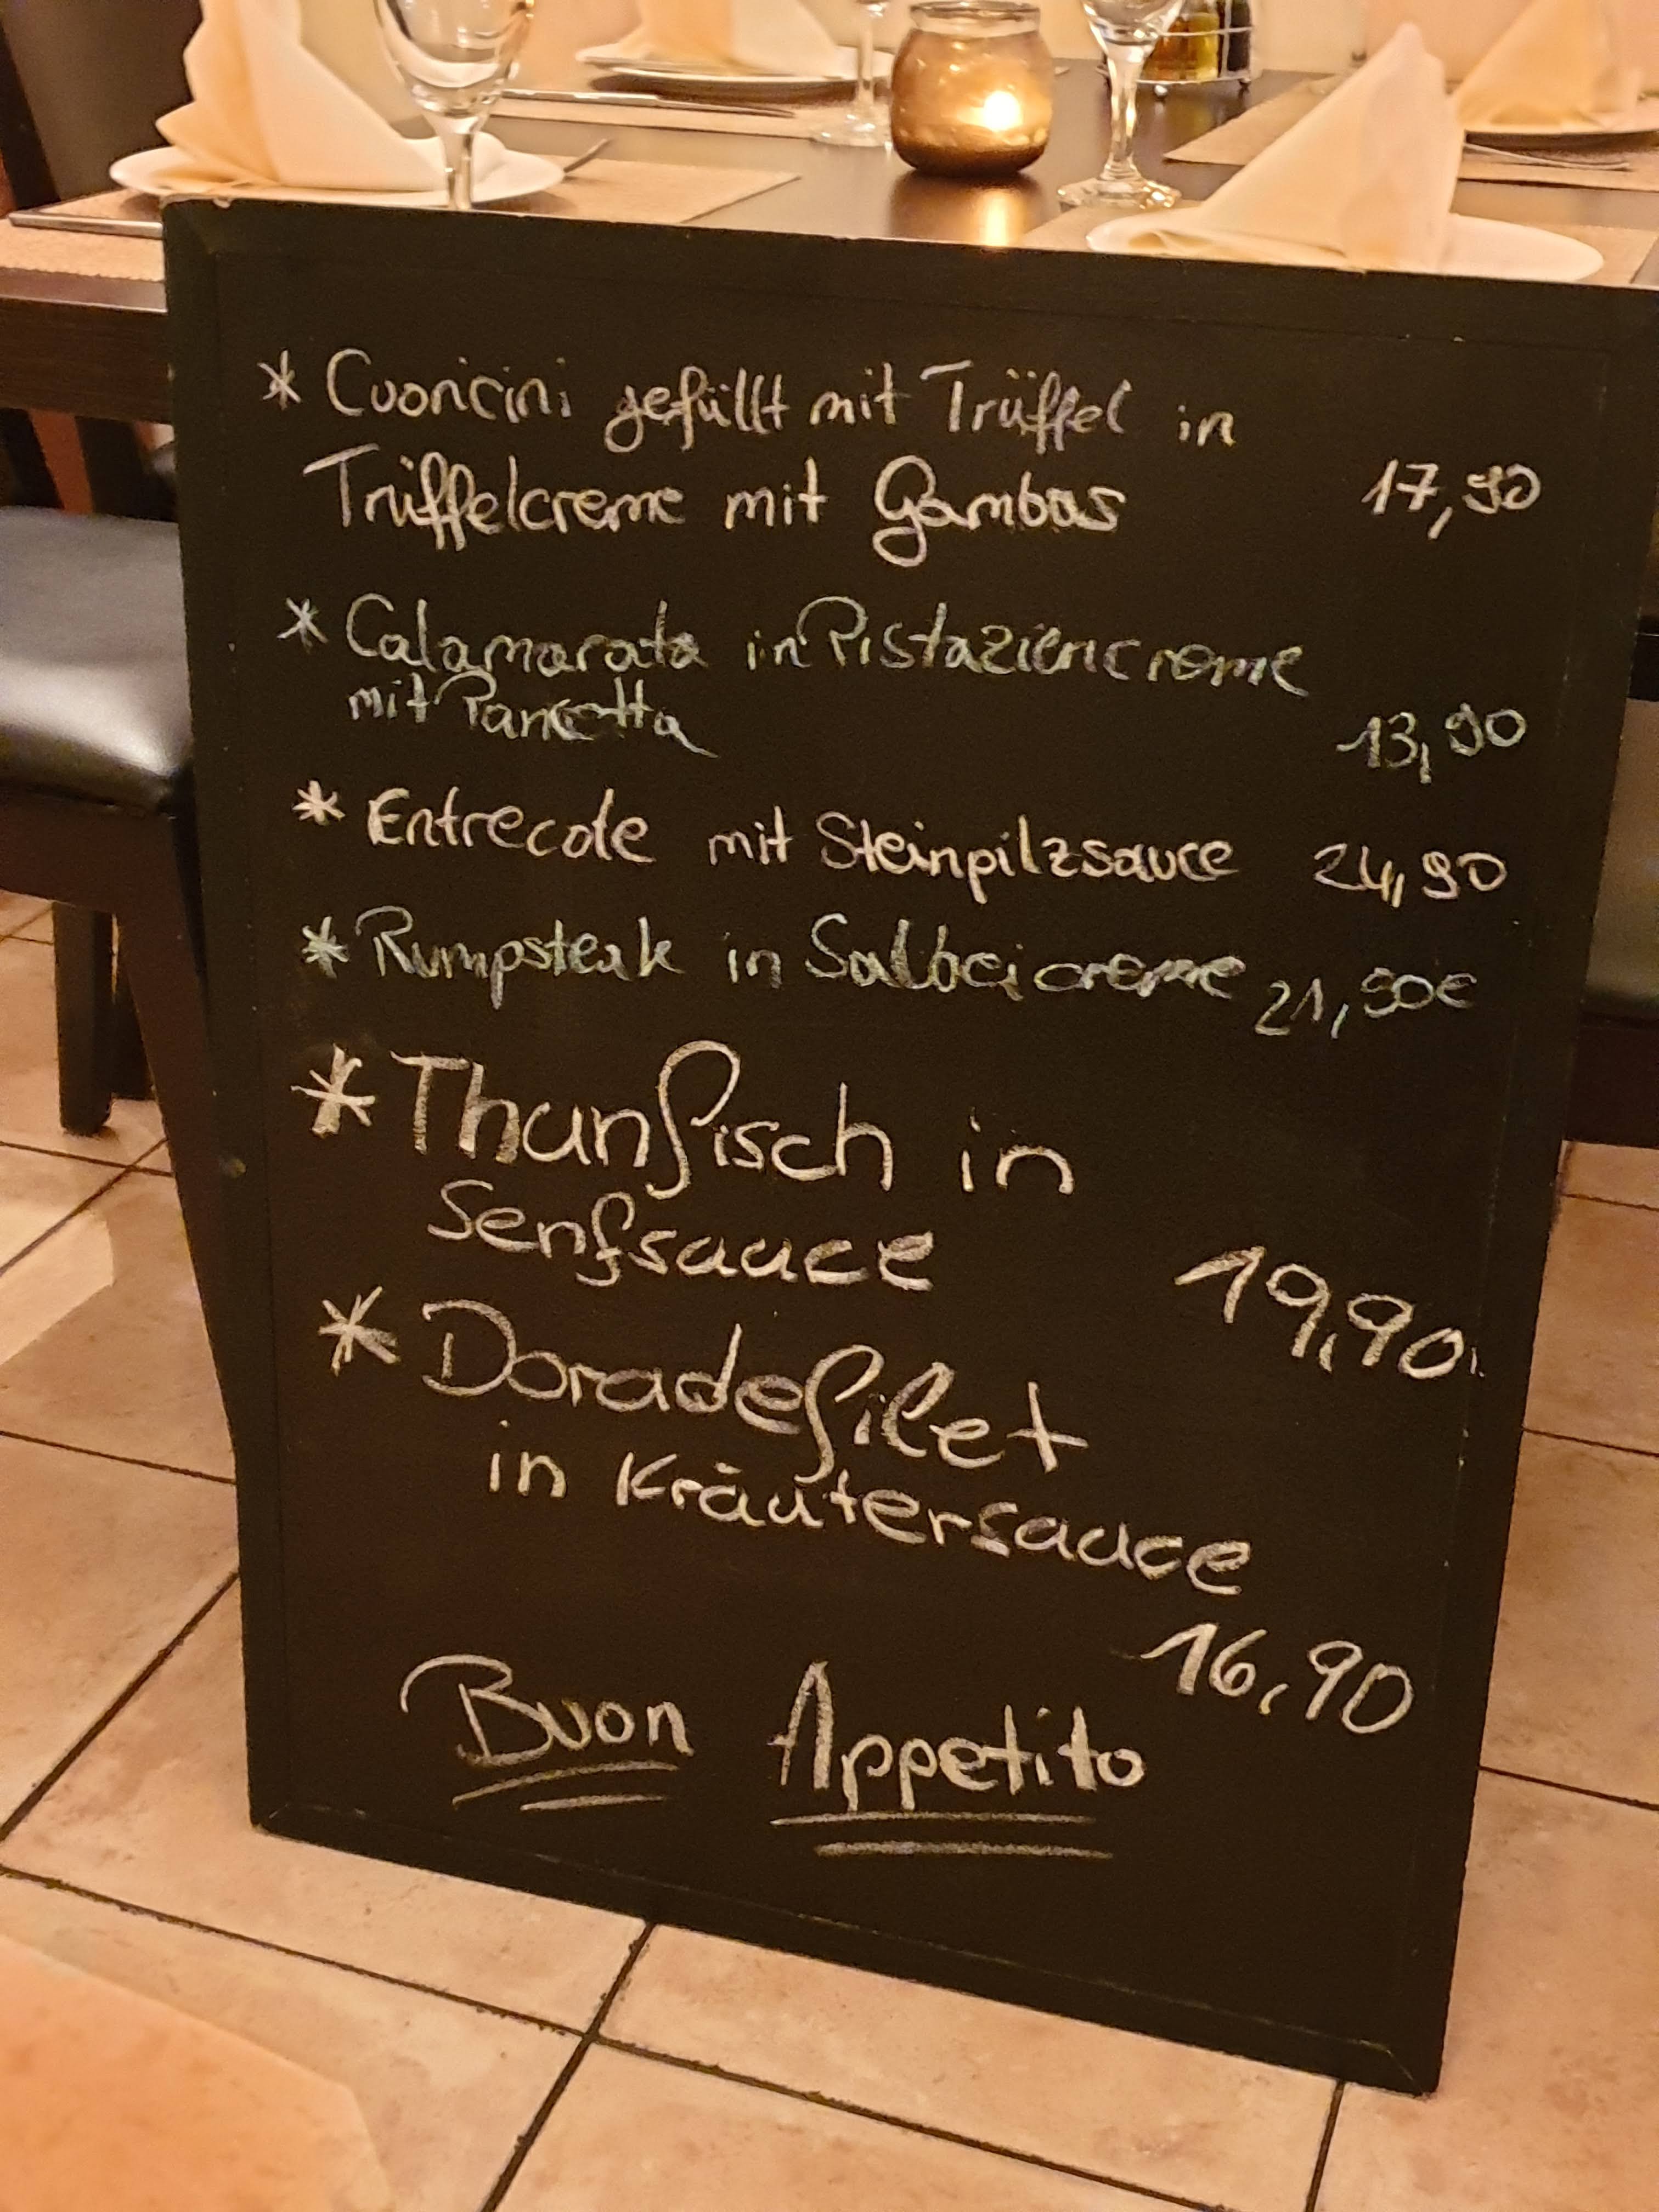 * Cuoricini gefüllt mit Trüffel in
Trüffelcreme mit Gambas 17,90
* Calamarata in Pistaziencreme
mit Pancetta 13,90
* Entrecote mit Steinpilzsauce 24,90
* Rumpsteak in Salbeicreme 21,90€
* Thunfisch in
Senfsauce 19,90
* Doradefilet
in Kräutersauce
16,90
Buon Appetito